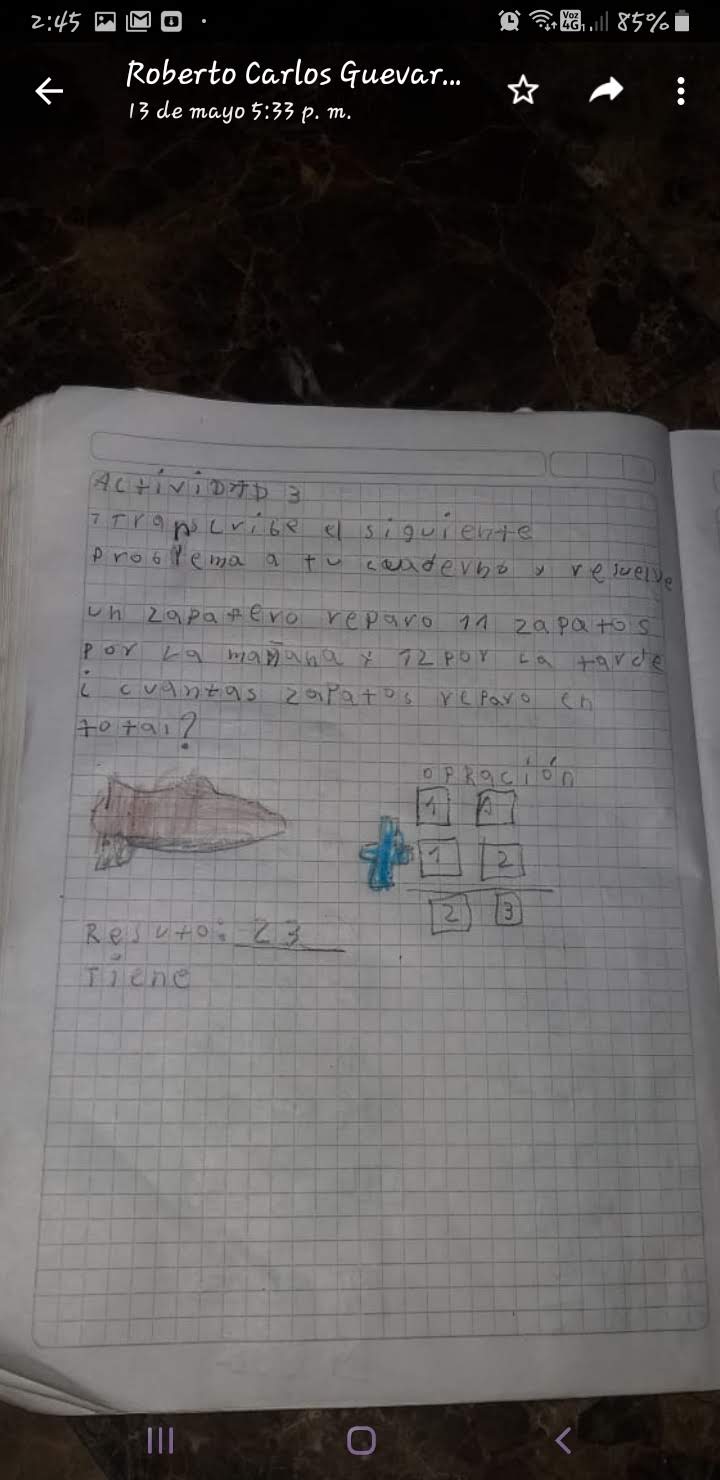 2:45
Voz
4G
85%
Roberto Carlos Guevar...
13 de mayo 5:33 p. m.
ACtiviDAD 3
Transcribe el siguiente
problema a tu cuaderno y resuelve
un zapatero reparo 11 zapatos
por La mañana y 12 por La tarde
¿ cuantas zapatos reparo en
total?
OPRación
1 1
+ 1 2
2 3
Resuto: 23
Tiene